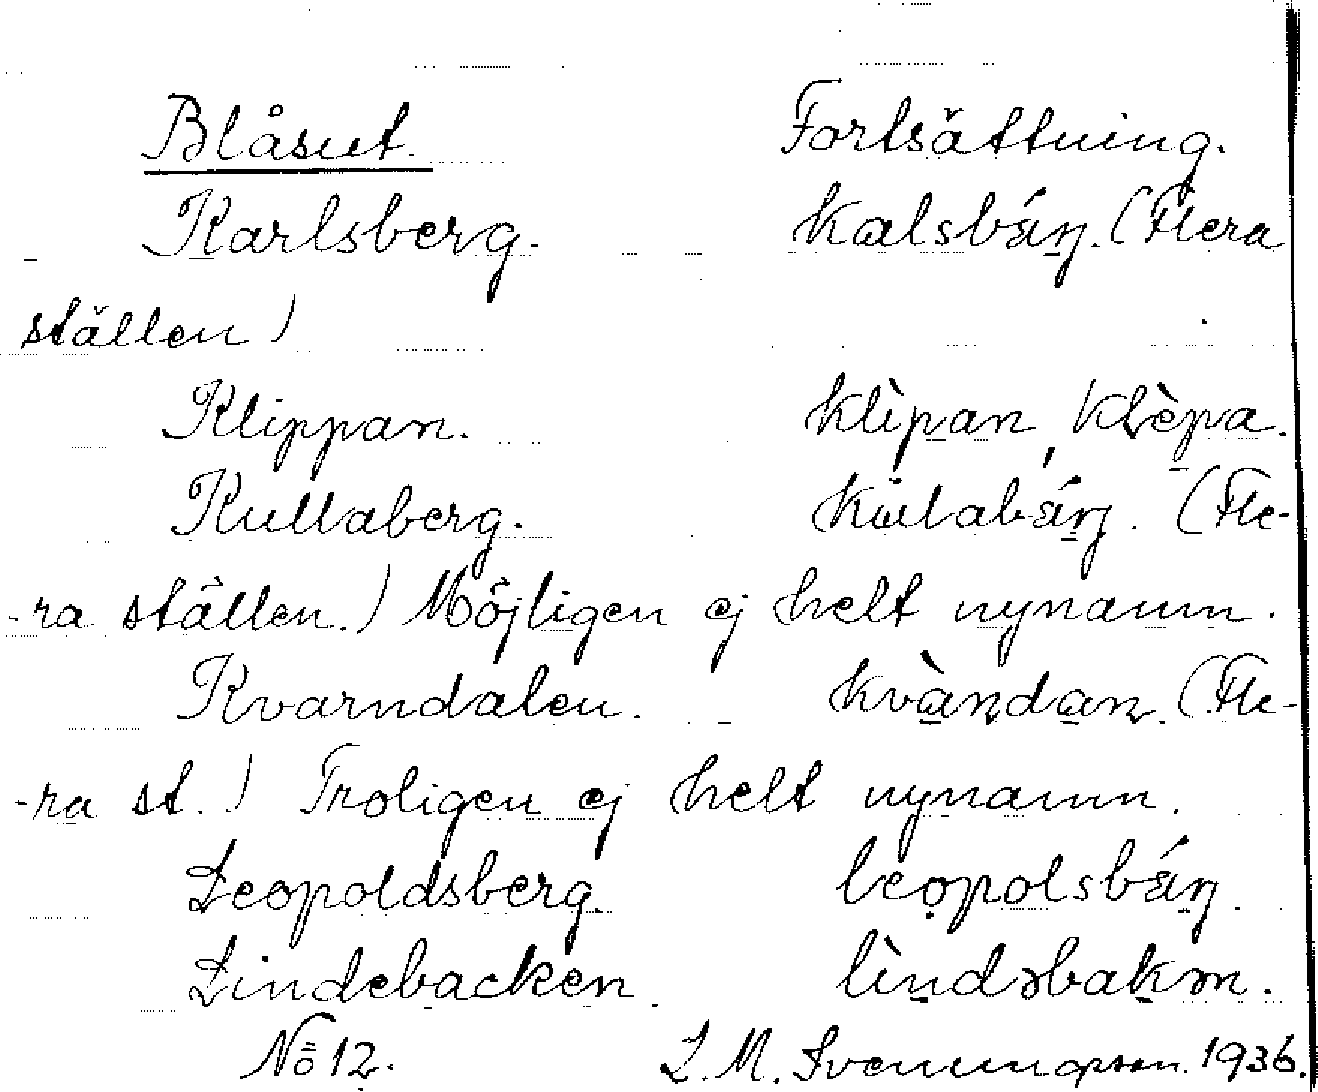 Blåsut. Fortsättning.
Karlsberg. kalsbáŋ. (Flera
ställen)
Klippan. klìpan, klèpa.
Kullaberg. kulabáŋ. (Fle-
-ra ställen.) Möjligen ej helt nynamn.
Kvarndalen. kvàndan. (Fle-
-ra st.) Troligen ej helt nynamn.
Leopoldsberg. leopolsbáŋ.
Lindebacken. lìndəbakən.
No 12. L. M. Svenungsson. 1936.